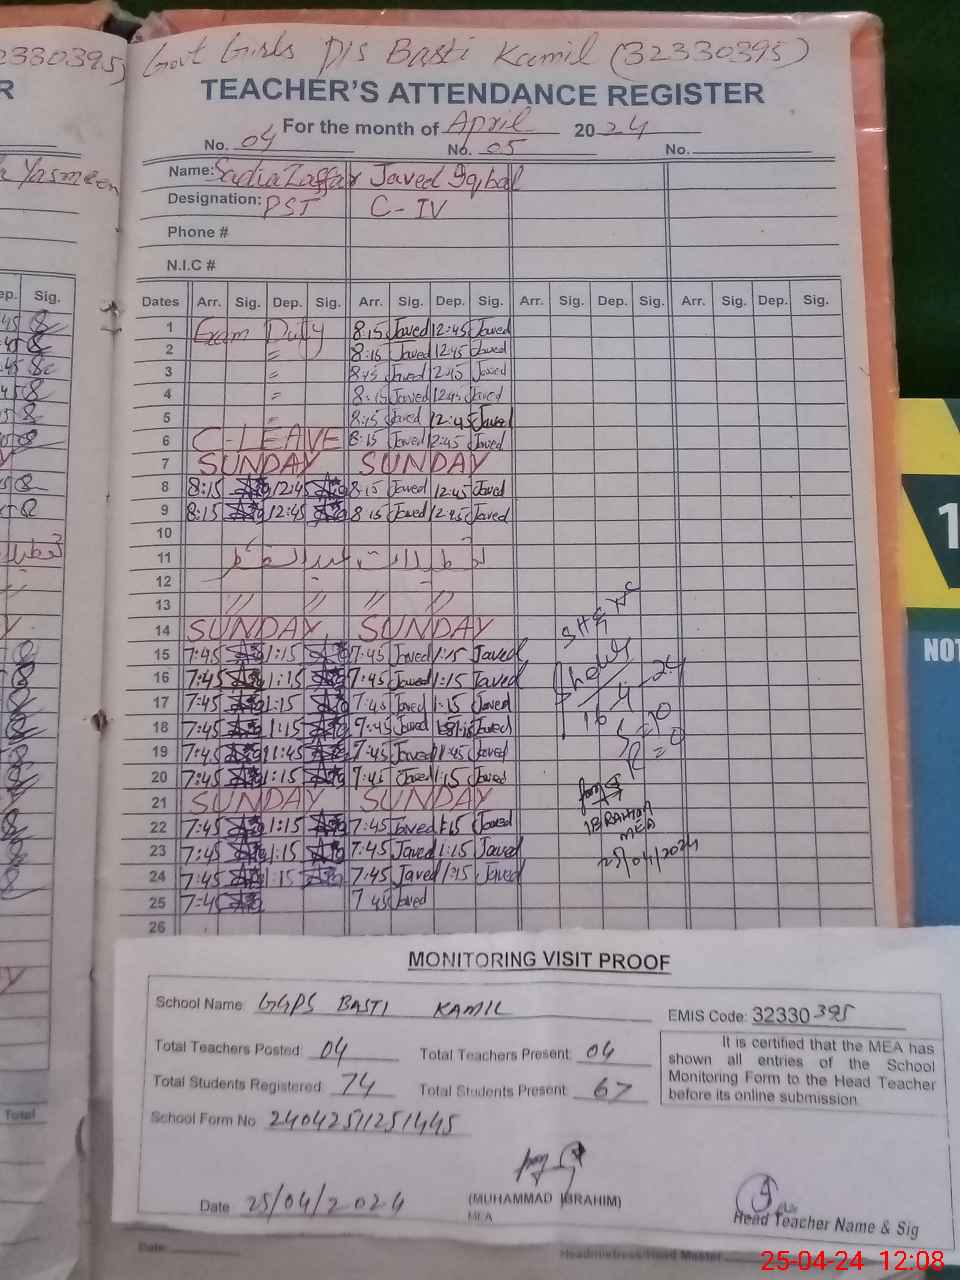 Govt Girls P/S Basti Kamil (32330395)
TEACHER'S ATTENDANCE REGISTER
For the month of April 2024
No. 04 No. 05 No.
Name: Sadia Zaffar Javed Iqbal
Designation: PST C-IV
Phone #
N.I.C #
Dates Arr. Sig. Dep. Sig. Arr. Sig. Dep. Sig. Arr. Sig. Dep. Sig. Arr. Sig. Dep. Sig.
1 Exam Duty 8:15 Javed 12:45 Javed
2 = 8:15 Javed 12:45 Javed
3 = 8:15 Javed 12:45 Javed
4 = 8:15 Javed 12:45 Javed
5 = 8:15 Javed 12:45 Javed
6 C-LEAVE 8:15 Javed 12:45 Javed
7 SUNDAY SUNDAY
8 8:15 12:45 8:15 Javed 12:45 Javed
9 8:15 12:45 8:15 Javed 12:45 Javed
10
11 تعطیلات عیدالفطر
12
13 // // // //
14 SUNDAY SUNDAY
15 7:45 1:15 7:45 Javed 1:15 Javed
16 7:45 1:15 7:45 Javed 1:15 Javed
17 7:45 1:15 7:45 Javed 1:15 Javed
18 7:45 1:15 7:45 Javed 1:15 Javed
19 7:45 11:45 7:45 Javed 11:45 Javed
20 7:45 1:15 7:45 Javed 1:15 Javed
21 SUNDAY SUNDAY
22 7:45 1:15 7:45 Javed 1:15 Javed
23 7:45 1:15 7:45 Javed 1:15 Javed
24 7:45 1:15 7:45 Javed 1:15 Javed
25 7:45 7:45 Javed
26
16-4-24
IBRAHIM
MEA
25/04/2024
MONITORING VISIT PROOF
School Name: GGPS BASTI KAMIL EMIS Code: 32330395
Total Teachers Posted: 04 Total Teachers Present: 04
Total Students Registered: 74 Total Students Present: 67
School Form No 24042511251445
It is certified that the MEA has
shown all entries of the School
Monitoring Form to the Head Teacher
before its online submission
Date 25/04/2024
(MUHAMMAD IBRAHIM)
MEA
Head Teacher Name & Sig
Total
Date:
Headmistress/Head Master
NOT
25-04-24 12:08